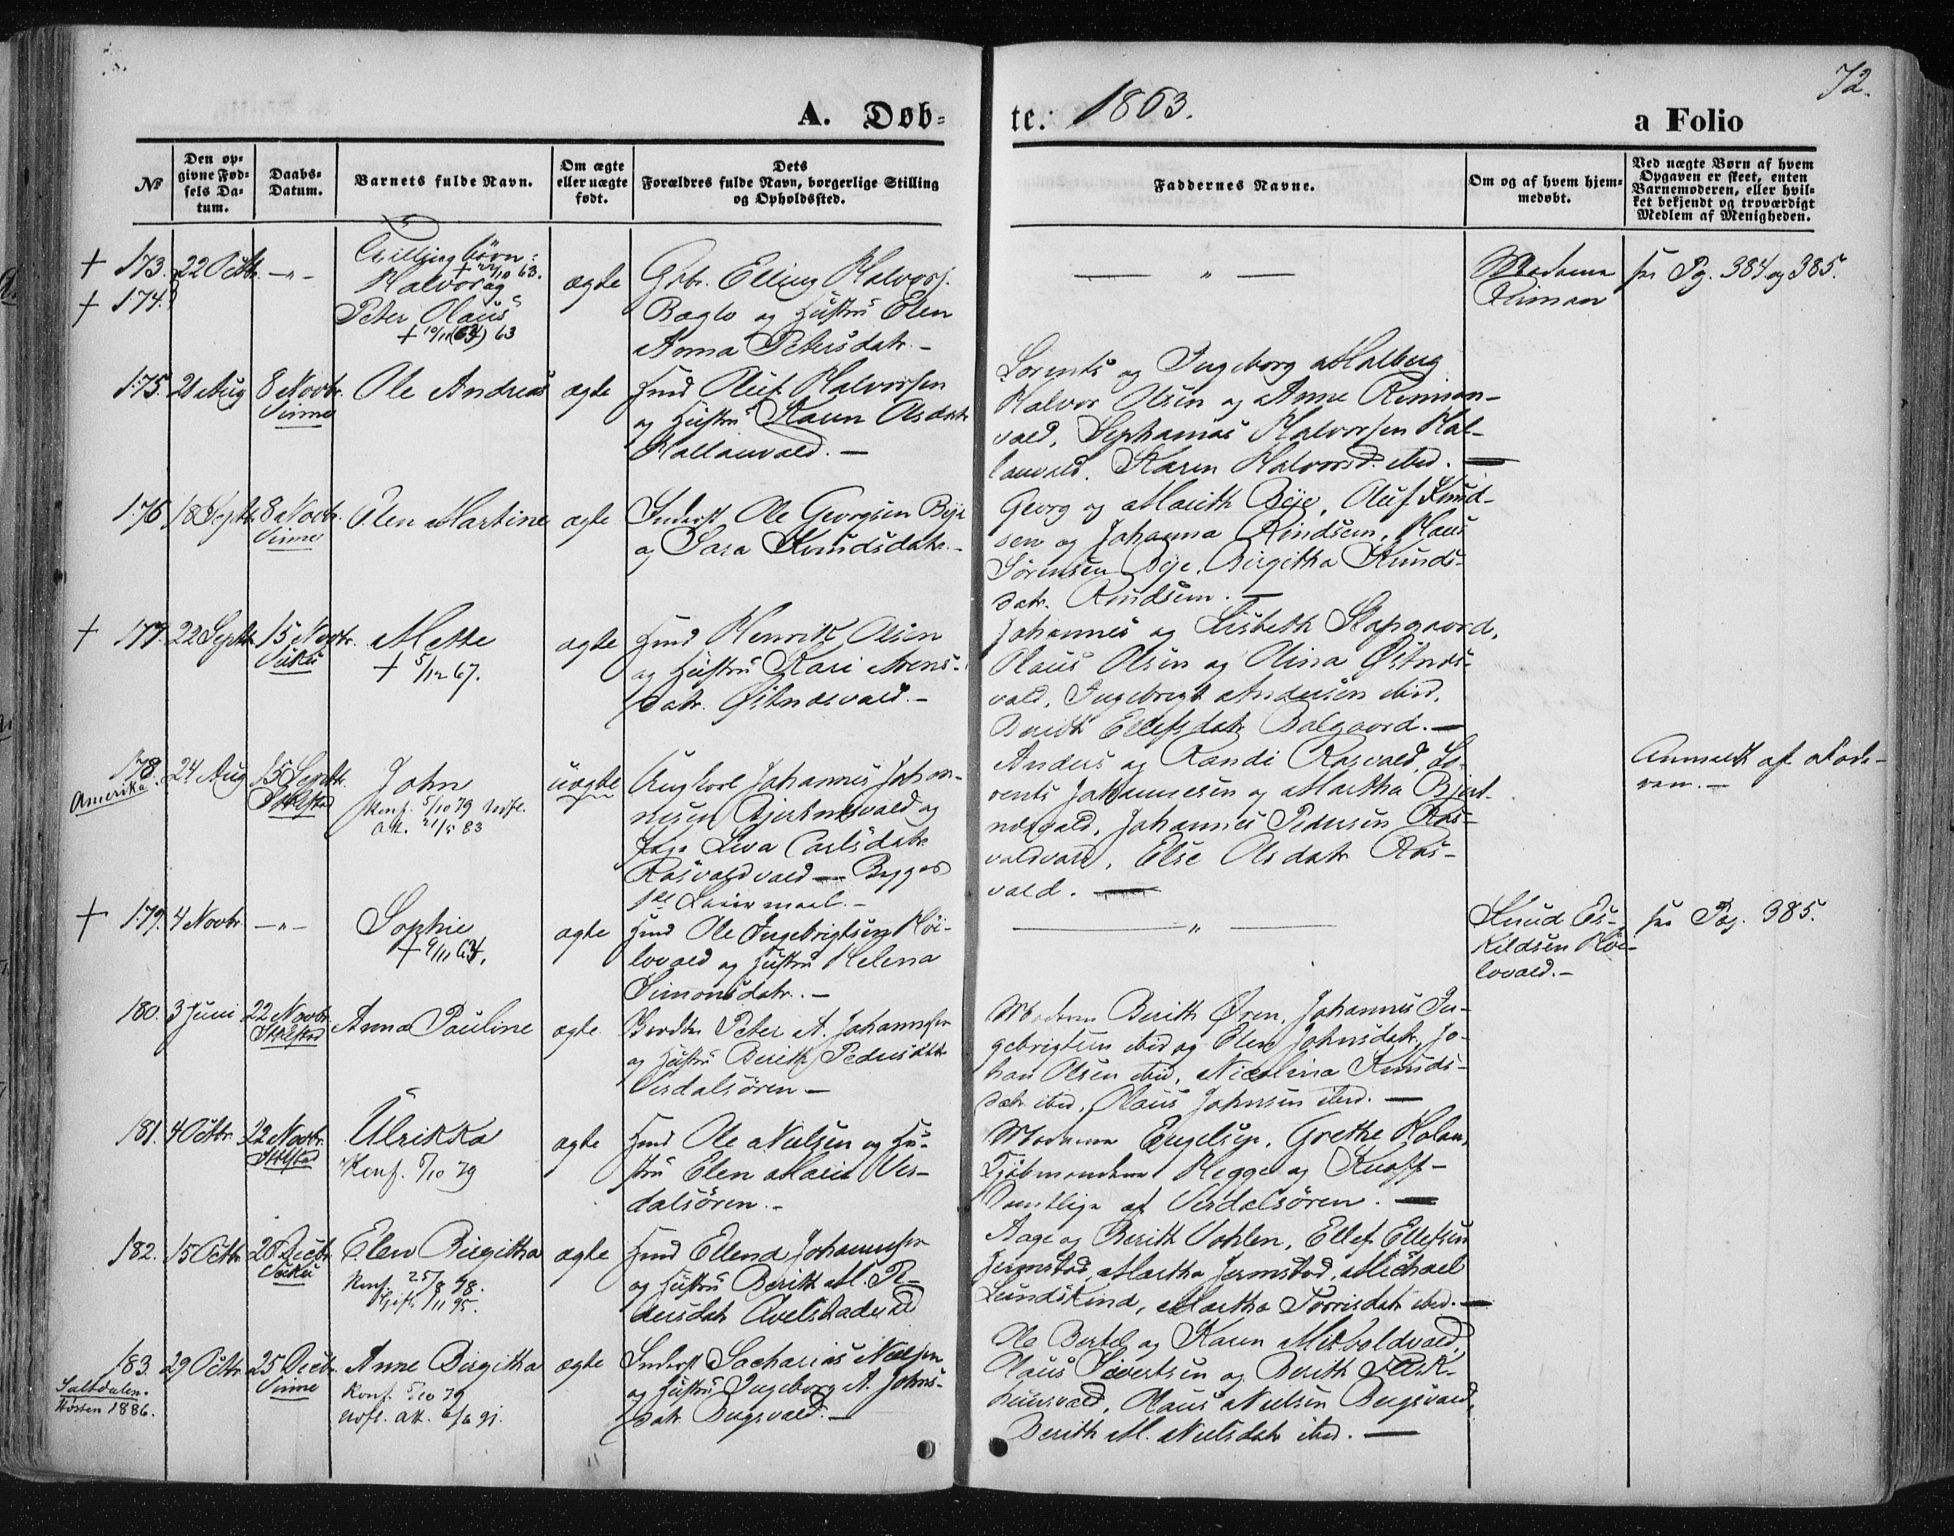 72.
A. Døb-
te. 1863.
a Folio
No
Den op-
givne Fød-
sels Da-
tum.
Daabs-
Datum.
Barnets fulde Navn.
Om ægte
eller uægte
født.
Dets
Forældres fulde Navn, borgerlige Stilling
og Opholdssted.
Faddernes Navne.
Om og af hvem hjem-
medøbt.
Ved uægte Børn af hvem
Opgaven er skeet, enten
Barnemoderen, eller hvil-
ket bekjendt og troværdigt
Medlem af Menigheden.
+ 173. 22 Octbr. -"- Tvillingbørn:
+ 22/10 63.
Halvor og
+ 174.
Peter Olaus
63
ægte
Gbr. Elling Halvors.
Baglo og Hustru Elen
Anna Petersdatr. -
— " —
Madame
Riman
se Pg. 384 og 385.
175. 21 Aug 8 Novbr.
Vinne
Ole Andreas
ægte
Hmd Oluf Halvorsen
og Hustru Karen Olsdatr
Hallanvald. —
Lorents og Ingeborg Malberg
Halvor Olsen og Anne Reman-
vald, Sephanias Halvorsen Hal-
lanvald. Karen Halvorsd. ibid. —
176. 18 Septbr. 8 Novbr.
Vinne
Elen Martine
ægte
Inderst Ole Georgsen Bye
og Sara Knudsdatr. -
Georg og Marith Bye, Oluf Knud-
sen og Johanna Rindsem, Klaus
Sørensen Bye, Birgitha Knuds-
datr. Rindsem. —
+ 177. 22 Septbr. 15 Novbr.
Vuku
Mette
+ 5/12 67.
ægte
Hmd Henrik Olsen
og Hustru Kari Arens-
datr. Østnæsvald. -
Johannes og Lisbeth Slapgaard,
Olaus Olsen og Olina Østnæs-
vald, Ingebrigt Andersen ibid,
Berith Ellefsdatr Balgaard. —
178. 24 Aug 15 Septbr.
Stiklestad
Amerika.
John
Konf. 5/10 79
att. 21/5 83
uægte
Ungkarl Johannes Johan-
nesen Bjertnæsvald og
Pige Liva Carlsdatr
Rosvaldvald — Begges
1ste Leiermaal. -
Anders og Randi Rosvald, Lo-
rents Johannesen og Martha Bjert-
næsvald, Johannes Pedersen Ros-
valdvald, Else Olsdatr Ros-
vald. —
Anmeldt af Fade-
ren. -
+ 179. 4 Novbr. -"-
Sophie
ægte
Hmd Ole Ingebrigtsen Høi-
lovald og Hustru Helena
Simonsdatr. -
— " —
Knud Es-
kildsen Høi-
lovald. -
se Pag. 385.
180. 3 Juni 22 Novbr.
Stiklestad
Anna Pauline
ægte.
Peter A. Johannesen
og Hustru Berith Pedersdatr
Verdalsøren —
Madam Berith Øren, Johannes In-
gebrigtsen ibid og Elen Johnsdatr, Jo-
han Olsen ibid, Nicolina Knuds-
datr ibid, Olaus Johnsen ibid. —
181. 4 Octbr. 22 Novbr.
Stiklestad
Ulrikka
Konf. 5/10 79
ægte
Hmd Ole Nielsen og Hu-
stru Elen Marie Ver-
dalsøren. -
Madame Engelsen, Grethe Holan,
Kjøbmændene Hegge og Knoff —
Samtlige af Verdalsøren. —
182. 15 Octbr. 26 Decbr.
Vuku
Elen Birgitha
Konf. 25/8 78.
ægte
Hmd Ellend Johannesen
og Hustru Berith M. Pe-
dersdatr Auelstadvald
Aage og Berith Vohlen, Ellef Ellefsen
Jermstad, Martha Jermstad, Michael
Lundskind, Martha Torrisdatr ibid. —
183. 29 Octbr. 25 Decbr.
Vinne
Saltdalen.
Høsten 1886.
Anne Birgitha
Konf. 5/10 79
att. 6/6 91.
ægte
Inderst Sacharias Nielsen
og Hustru Ingeborg A. Johns-
datr. Bugsvald. —
Ole Bertel og Karen Midholdvald,
Olaus Sivertsen og Berith
Olaus Nielsen Bugsvald,
Berith M. Nielsdatr ibid. —